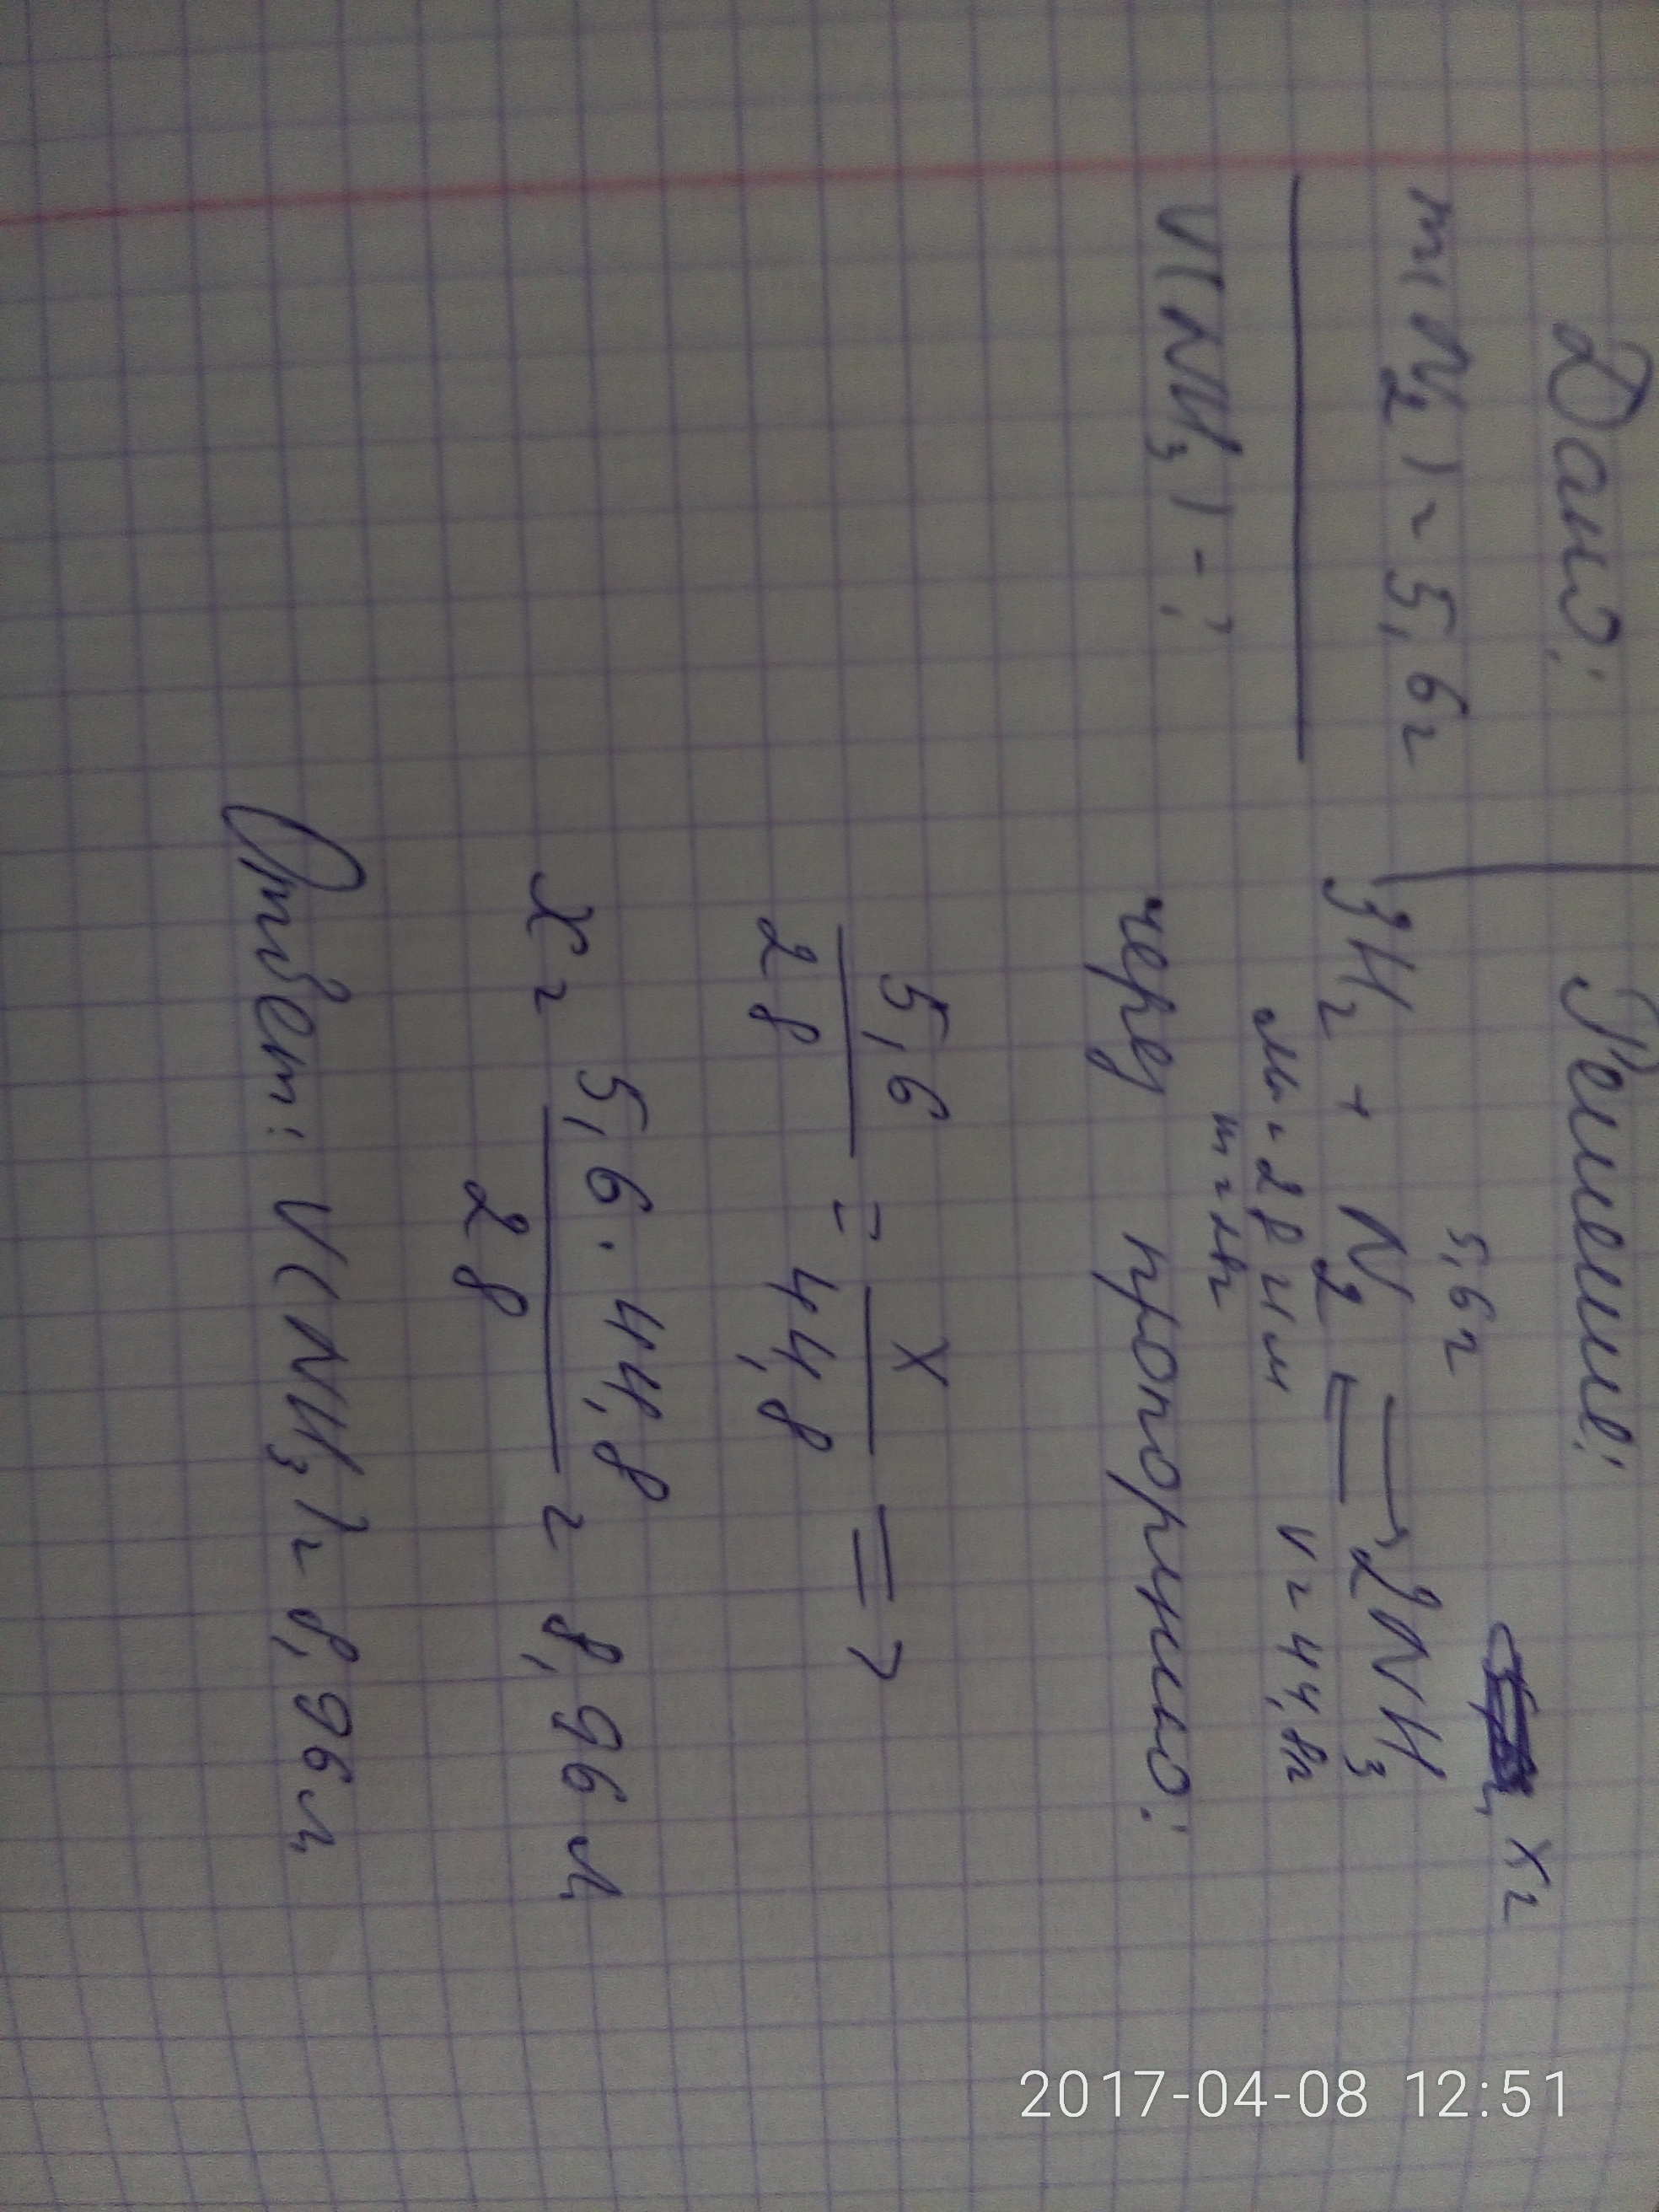 Дано:
m(N2) = 5,6г
V(NH3) - ?
Решение:
5,6г xг
3H2 + N2 ⇌ 2NH3
M = 28 г/м V = 44,8л
m = 28г
через пропорцию:
5,6/28 = x/44,8 =>
x = 5,6 · 44,8/28 = 8,96 л
Ответ: V(NH3) = 8,96 л
2017-04-08 12:51